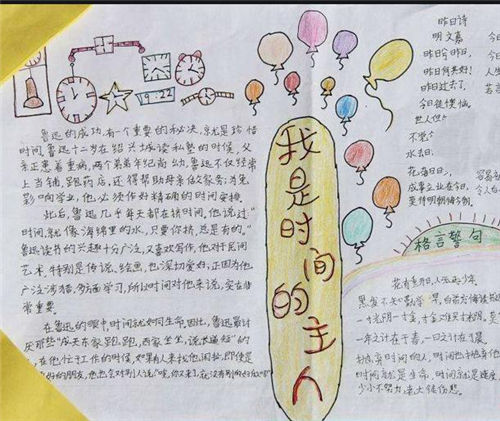 19:22
鲁迅的成功,有一个重要的秘决,就是珍惜
时间。鲁迅十二岁在绍兴城读私塾的时候,父
亲正患着重病,两个弟弟年纪尚幼,鲁迅不仅经常
上当铺,跑药店,还得帮助母亲做家务;为免
影响学业,他必须作好精确的时间安排。
此后,鲁迅几乎每天都在挤时间。他说过:"
时间,就像海绵里的水,只要你挤,总是有的。"
鲁迅读书的兴趣十分广泛,又喜欢写作,他对于民间
艺术,特别是传说、绘画,也深切爱好;正因为他
广泛涉猎,多方面学习,所以时间对他来说,实在非
常重要。
在鲁迅的眼中,时间就如同生命。因此,鲁迅最讨
厌那些"成天东家跑跑,西家坐坐,说长道短"的
,在他忙于工作的时候,如果有人来找他闲扯,即使是
好的朋友,他也会对别人说:"唉,你又来了,
我是时间的主人
昨日诗
明 文嘉
昨日兮昨日,
昨日何其好!
昨日过去了,
今日徒懊恼。
世人但
不觉
水去日,
花落日,
成事立业在今日,
莫待明朝悔今朝。
格言警句
花有重开日,人无再少年。
黑发不知勤学早,白首方悔读书
一寸光阴一寸金,寸金难买寸光阴。
一年之计在于春,一日之计在于晨
时间就是生命,时间就是速度,
少小不努力,老大徒伤悲。